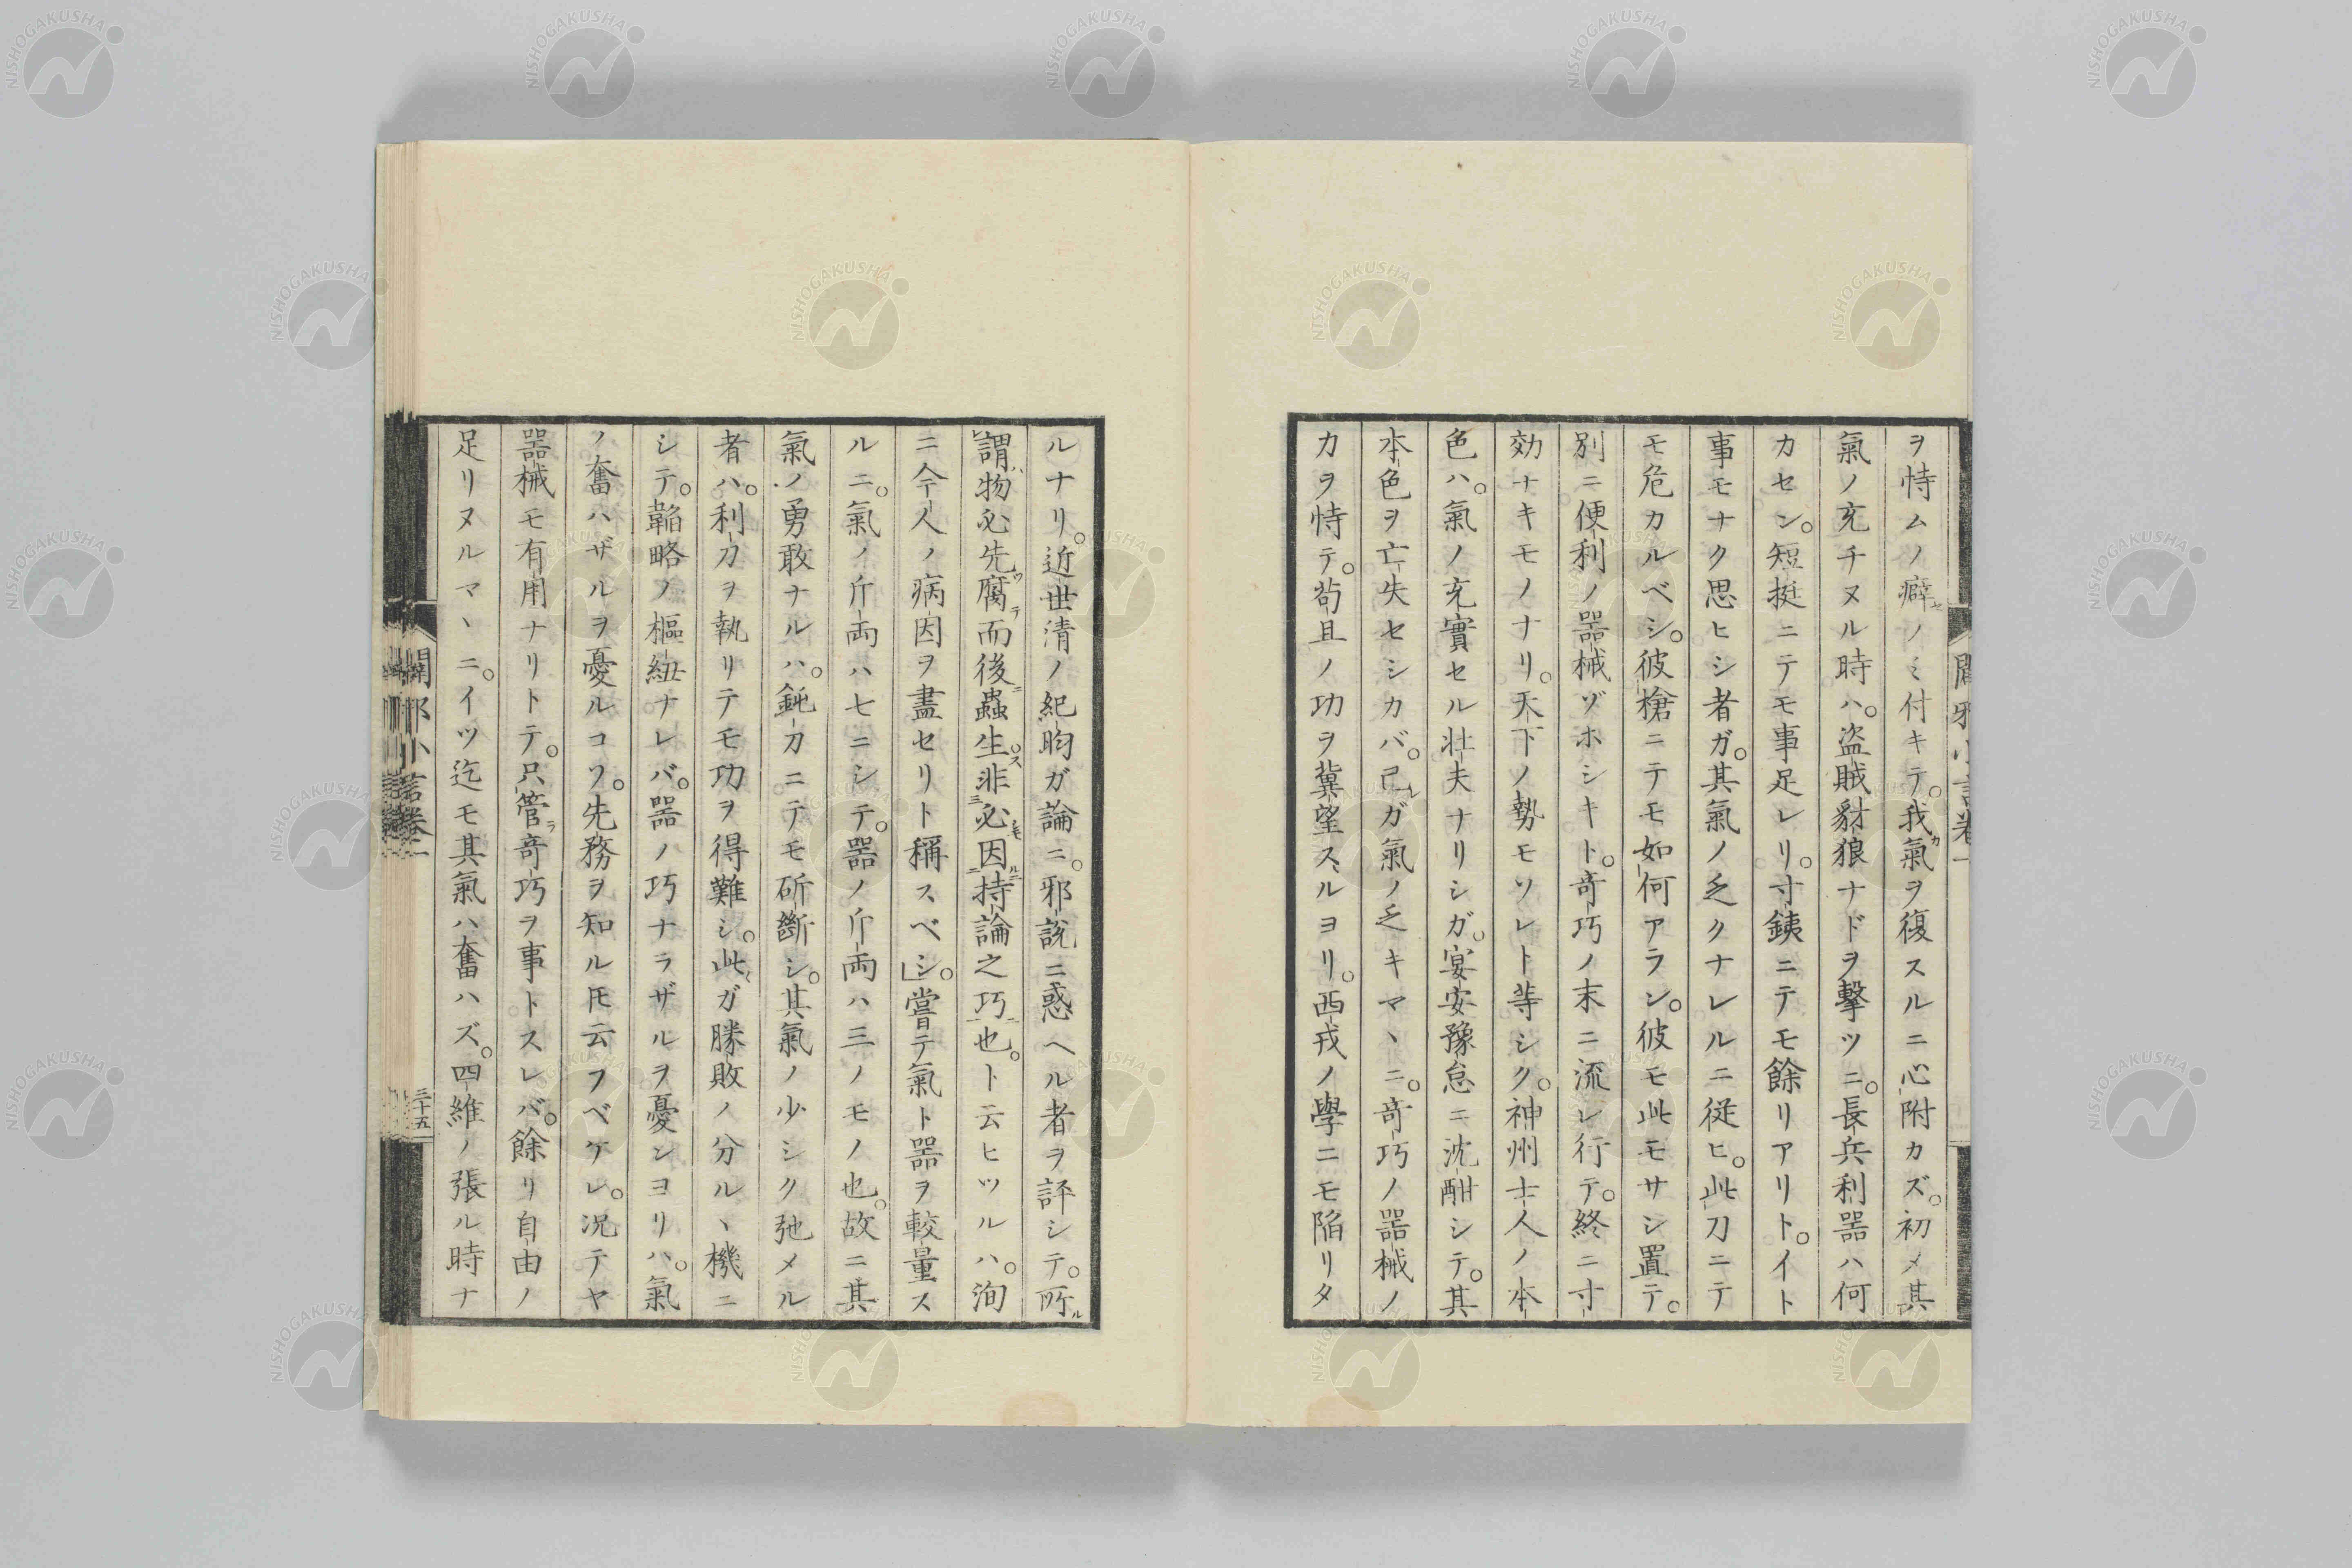 ヲ恃ムノ癖ノミ付キテ。我氣ヲ復スルニ心附カズ。初メ其
氣ノ充チヌル時ハ。盗賊豺狼ナドヲ擊ツニ。長兵利器ハ何
カセン。短挺ニテモ事足レリ。寸銕ニテモ餘リアリト。イト
事モナク思ヒシ者ガ。其氣ノ乏クナレルニ従ヒ。此刀ニテ
モ危カルベシ。彼槍ニテモ如何アラン。彼モ此モサシ置テ。
別ニ便利ノ器械ヅホシキト。竒巧ノ末ニ流レ行テ。終ニ寸
効ナキモノナリ。天下ノ勢モソレト等シク。神州士人ノ本
色ハ。氣ノ充實セル壮夫ナリシガ。宴安豫怠ニ沈酣シテ。其
本色ヲ亡失セシカバ。己ガ氣ノ乏キマヽニ。竒巧ノ器械ノ
カヲ恃テ。苟且ノ功ヲ冀望スルヨリ。西戎ノ學ニモ陥リタ
ルナリ。近世清ノ紀昀ガ論ニ。邪説ニ惑ヘル者ヲ評シテ。所
謂物必先腐而後蟲生。非必因持論之巧也。ト云ヒツルハ。洵
ニ今人ノ病因ヲ盡セリト稱スベシ。」嘗テ氣ト器ヲ較量ス
ルニ。氣ノ斤両ハ七ニシテ。器ノ斤両ハ三ノモノ也。故ニ其
氣ノ勇敢ナルハ。鈍刀ニテモ斫斷シ。其氣ノ少シク弛メル
者ハ。利刀ヲ執リテモ功ヲ得難シ。此ガ勝敗ノ分ルヽ機ニ
シテ。韜略ノ樞紐ナレバ。器ノ巧ナラザルヲ憂ンヨリハ。氣
ノ奮ハザルヲ憂ルコソ。先務ヲ知ルトモ云フベケレ。况テヤ
器械モ有用ナリトテ。只管竒巧ヲ事トスレバ。餘リ自由ノ
足リヌルマヽニ。イツ迄モ其氣ハ奮ハズ。四維ノ張ル時ナ
闢邪小言卷一
三十五